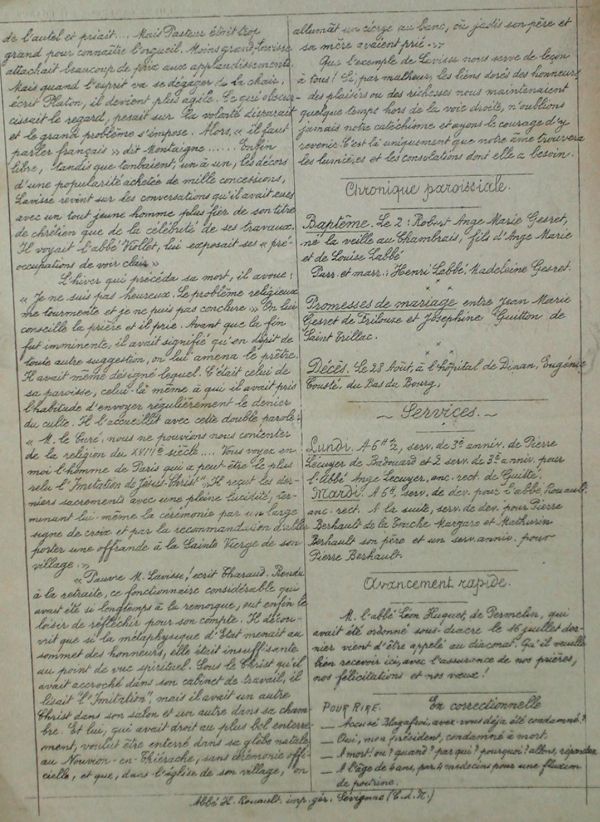 de l'autel et priait.... Mais Pasteur était trop
grand pour connaître l'orgueil. Moins grand, Lavisse
attachait beaucoup de prix aux applaudissements.
Mais quand l'esprit va se dégager de la chair,
écrit Platon, il devient plus agile. Ce qui obscur-
cissait le regard, pesait sur la volonté disparaît
et le grand problème s'impose. Alors, « il faut
parler français » dit Montaigne...... Enfin
libre, tandis que tombaient, un à un, les décors
d'une popularité achetée de mille concessions,
Lavisse revint sur les conversations qu'il avait eues
avec un tout jeune homme plus fier de son titre
de chrétien que de la célébrité de ses travaux.
Il voyait l'abbé Viollet, lui exposait ses « pré-
occupations de voir clair »
L'hiver qui précéda sa mort, il avoue:
« Je ne suis pas heureux. Le problème religieux
me tourmente et je ne puis pas conclure » On lui
conseille la prière et il prie. Avant que la fin
fut imminente, il avait signifié qu'en dépit de
toute autre suggestion, on lui amena le prêtre.
Il avait même désigné lequel. C'était celui de
sa paroisse, celui-là même à qui il avait pris
l'habitude d'envoyer régulièrement le denier
du culte. Il l'accueillit avec cette double parole:
« M. le Curé, nous ne pouvions nous contenter
de la religion du XVIIIe siècle.... Vous voyez en
moi l'homme de Paris qui a peut-être le plus
relu l'"Imitation de Jésus-Christ". Il reçut les der-
niers sacrements avec une pleine lucidité, ter-
minant lui-même la cérémonie par un large
signe de croix et par la recommandation d'aller
porter une offrande à la Sainte Vierge de son
village.
« Pauvre M. Lavisse! écrit Tharaud. Rendu
à la retraite, ce fonctionnaire considérable qui
avait été si longtemps à la remorque, eut enfin le
loisir de réfléchir pour son compte. Il décou-
vrit que si la métaphysique d'Etat menait au
sommet des honneurs, elle était insuffisante
au point de vue spirituel. Sous le Christ qu'il
avait accroché dans son cabinet de travail, il
lisait l'"Imitation", mais il avait un autre
Christ dans son salon et un autre dans sa cham-
bre. Et lui, qui avait droit au plus bel enterre-
ment, voulut être enterré dans sa glèbe natale
au Nouvion-en-Thiérache, sans cérémonie offi-
cielle, et que, dans l'église de son village, on
allumât un cierge au banc, où jadis son père et
sa mère avaient prié...
Que l'exemple de Lavisse nous serve de leçon
à tous! Si, par malheur, les liens dorés des honneurs,
des plaisirs ou des richesses nous maintenaient
quelque temps hors de la voie droite, n'oublions
jamais notre catéchisme et ayons le courage d'y
revenir. C'est là uniquement que notre âme trouvera
les lumières et les consolations dont elle a besoin.
Chronique paroissiale.
Baptême. Le 2: Robert Ange Marie Gesret,
né la veille au Chambrais, fils d'Ange Marie
et de Louise Labbé
Parr. et marr.: Henri Labbé, Madeleine Gesret.
Promesses de mariage entre Jean Marie
Gesret de Trilouse et Joséphine Guitton de
Saint Trillac.
Décès. Le 28 Août, à l'hôpital de Dinan, Eugénie
Cousté, du Bas du Bourg.
~ Services. ~
Lundi. A 6H ½, serv. de 3e anniv. de Pierre
Lécuyer de Badouard et 2 serv. de 3e anniv. pour
l'abbé Ange Lécuyer, anc. rect. de Guitté.
Mardi. A 6H. serv. de dev. pour l'abbé Rouault,
anc. rect. A la suite, serv. de dev. pour Pierre
Berhault de la Touche Margaro et Mathurin
Berhault son père et un serv. anniv. pour
Pierre Berhault.
Avancement rapide.
M. l'abbé Léon Huguet, de Permelin, qui
avait été ordonné sous-diacre le 16 juillet der-
nier vient d'être appelé au diaconat. Qu'il veuille
bien recevoir ici, avec l'assurance de nos prières,
nos félicitations et nos vœux!
POUR RIRE. En correctionnelle
_ Accusé Blagafroi, avez-vous déjà été condamné?
_ Oui, mon président, condamné à mort.
_ A mort! ou? quand? par qui? pourquoi? allons, répondez
_ A l'âge de 6 ans, par 4 médecins pour une fluxion
de poitrine.
Abbé H. Rouault. imp. gér. Sévignac (C.d.N.)